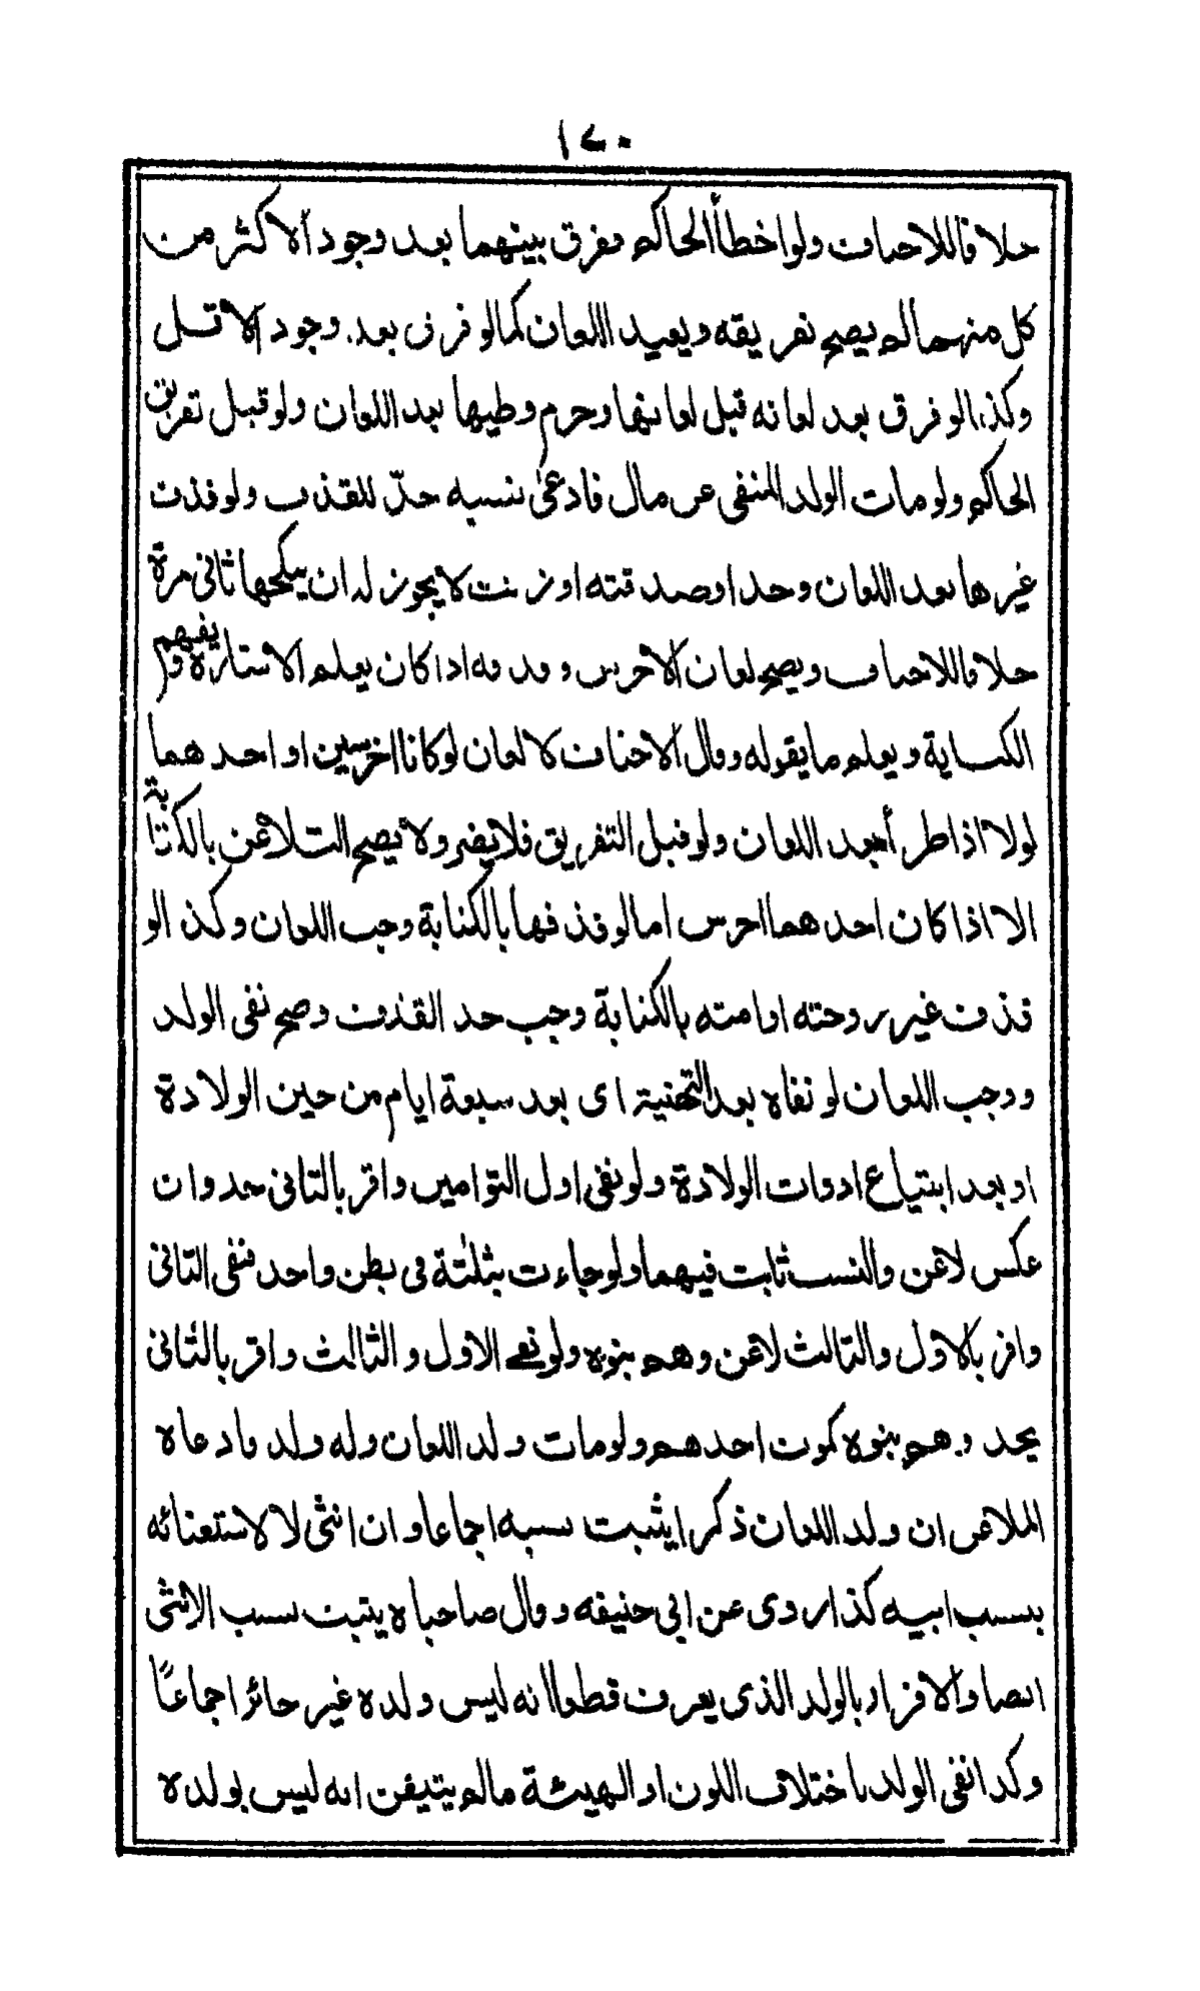 ١٧٠
خلافا للاحناف ولو اخطأ الحاكم ففرق بينهما بعد وجود الاكثر من
كل منهما لم يصح تفريقه ويعيد اللعان كما لو فرق بعد وجود الاقل
وكذا لو فرق بعد لعانه قبل لعانها وحرم وطيها بعد اللعان ولو قبل تفريق
الحاكم ولو مات الولد المنفى عن مال فادعى نسبه حدّ للقذف ولو قذف
غيرها بعد اللعان وحد او صدقته او زنت لا يجوز له ان ينكحها ثانى مرة
خلافا للاحناف ويصح لعان الاخرس وقذفه اذا كان يعلم الاشارة ويفهم
الكتابة ويعلم ما يقوله وقال الاحناف لا لعان لو كانا اخرسين او احدهما
لولا اذا طرأ بعد اللعان ولو قبل التفريق فلا يضر ولا يصح التلاعن بالكتابة
الا اذا كان احدهما اخرس اما لو قذفها بالكتابة وجب اللعان وكذا لو
قذف غير زوجته او امته بالكتابة وجب حد القذف وصح نفى الولد
ووجب اللعان لو نفاه بعد التهنية اى بعد سبعة ايام من حين الولادة
او بعد ابتياع ادوات الولادة ولو نفى اول التوامين واقر بالثانى حد وان
عكس لاعن والنسب ثابت فيهما ولو جاءت بثلثة فى بطن واحد فنفى الثانى
واقر بالاول والثالث لاعن وهم بنوه ولو نفى الاول والثالث واقر بالثانى
يحد وهم بنوه كموت احدهم ولو مات ولد اللعان وله ولد فادعاه
الملاعن ان ولد اللعان ذكرا يثبت نسبه اجماعا وان انثى لا لاستغنائه
بنسب ابيه كذا روى عن ابى حنيفه وقال صاحباه يثبت نسب الانثى
ايضا والاقرار بالولد الذى يعرف قطعا انه ليس ولده غير جائز اجماعًا
وكذا نفى الولد باختلاف اللون او الهيئة ما لم يتيقن انه ليس بولده